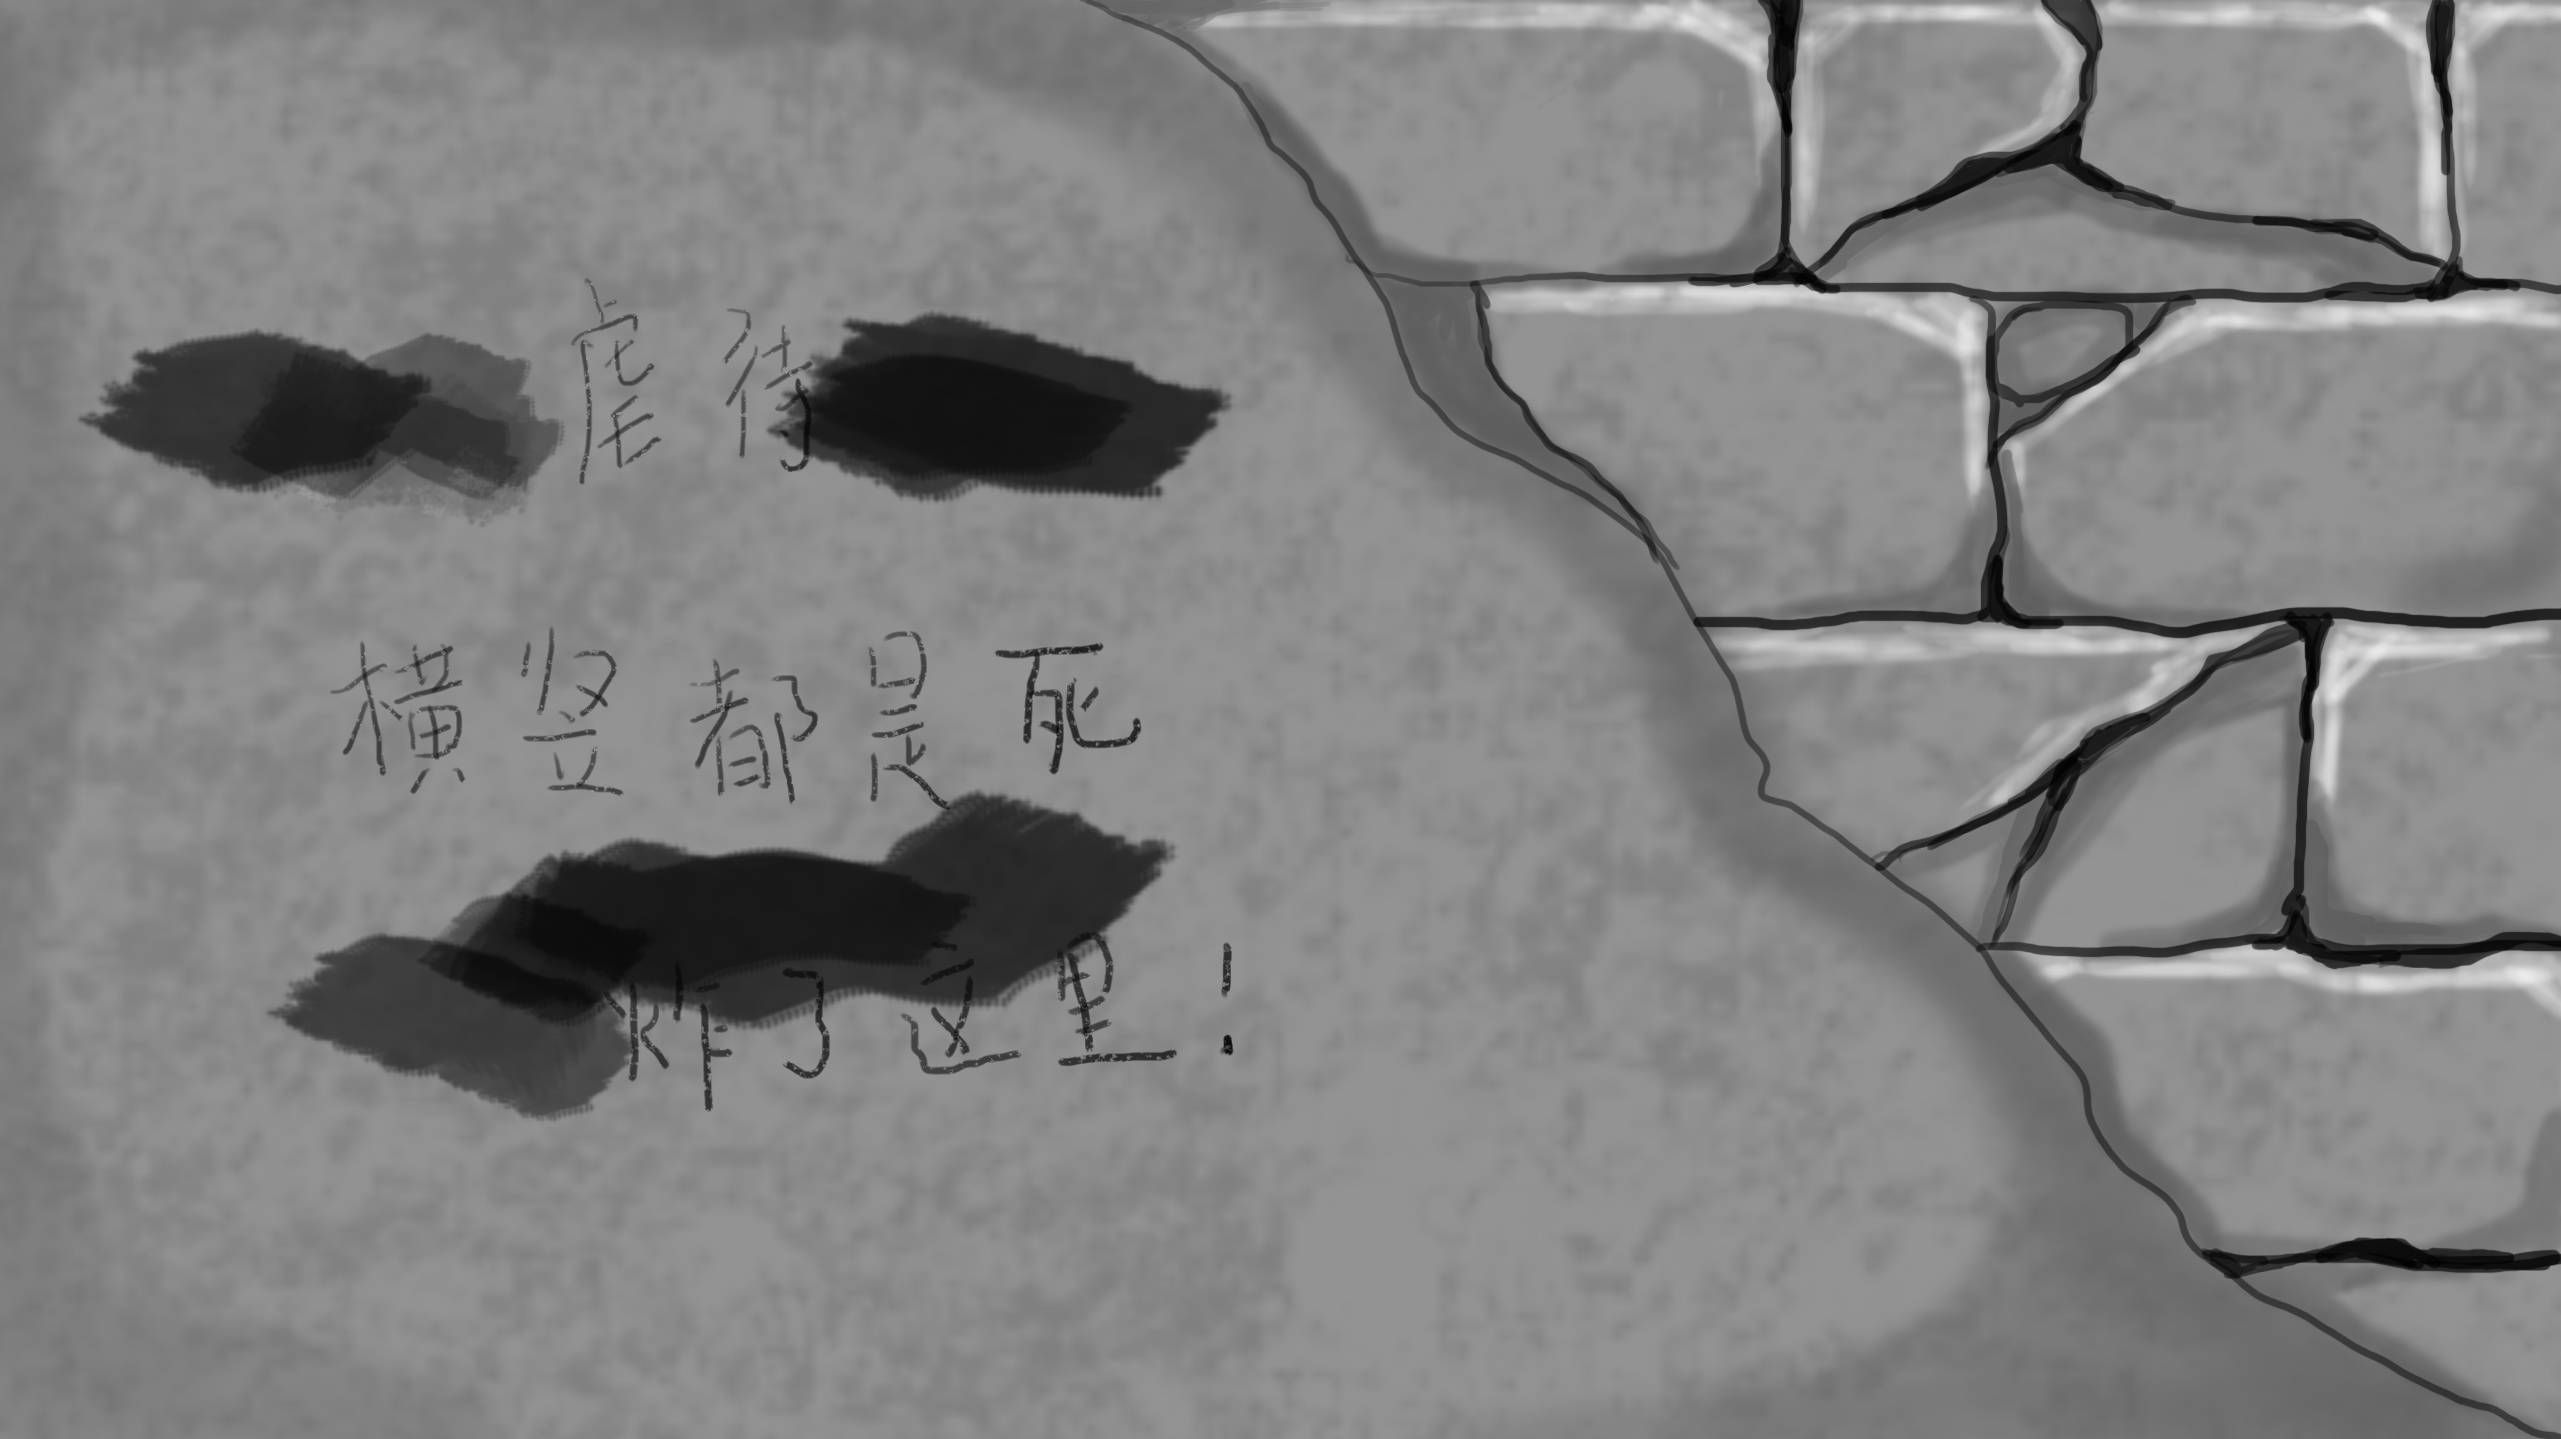 虐待
横竖都是死
炸了这里!